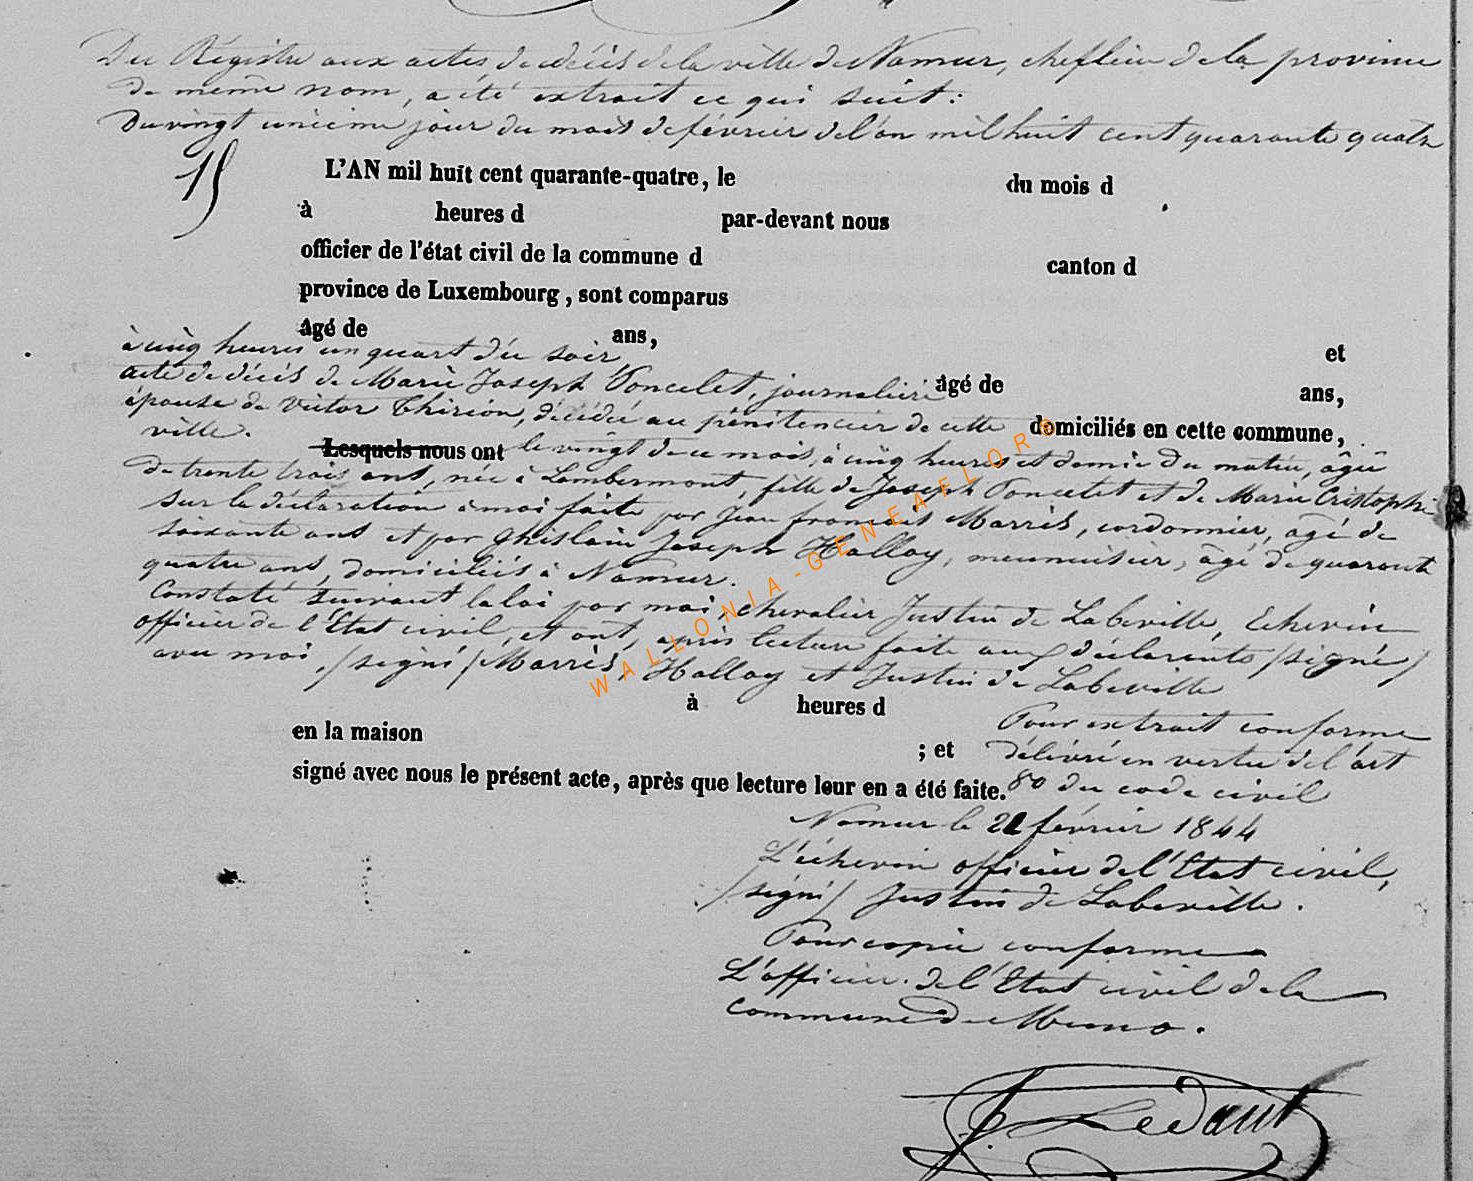 Du Régistre aux actes de décès de la ville de Namur, cheflieu de la province
de même nom, a été extrait ce qui suit:
Du vingt unième jour du mois de février de l'an mil huit cent quarante quatre
15
L'AN mil huit cent quarante-quatre, le du mois d
à heures d par-devant nous
officier de l'état civil de la commune d canton d
province de Luxembourg, sont comparus
âgé de ans,
à cinq heures un quart du soir et
acte de décès de Marie Joseph Poncelet, journalière âgé de ans,
épouse de Victor Thirion, décédée au pénitencier de cette domiciliés en cette commune,
ville.
Lesquels nous ont le vingt de ce mois, à cinq heures et demie du matin, âgée
de trente trois ans, née à Lambermont, fille de Joseph Poncelet et de Marie Cristophe
sur la déclaration à moi faite par Jean françois Marrès, cordonnier, âgé de
soixante ans et par Ghislain Joseph Halloy, menuisier, âgé de quarante
quatre ans, domiciliés à Namur.
Constaté suivant la loi par moi, chevalier Justin de Labeville, Echevin
officier de l'Etat civil, et ont, après lecture faite aux déclarants /signé/
avec moi, /signé/ Marrès, Halloy et Justin de Labeville
à heures d
Pour extrait conforme
en la maison ; et délivré en vertu de l'art
signé avec nous le présent acte, après que lecture leur en a été faite. 80 du code civil
Namur le 21 février 1844
L'échevin officier de l'Etat civil,
/signé/ Justin de Labeville.
Pour copie conforme
L'officier de l'Etat civil de la
commune de Muno.
Ledant
WALLONIA-GENEAFLORE